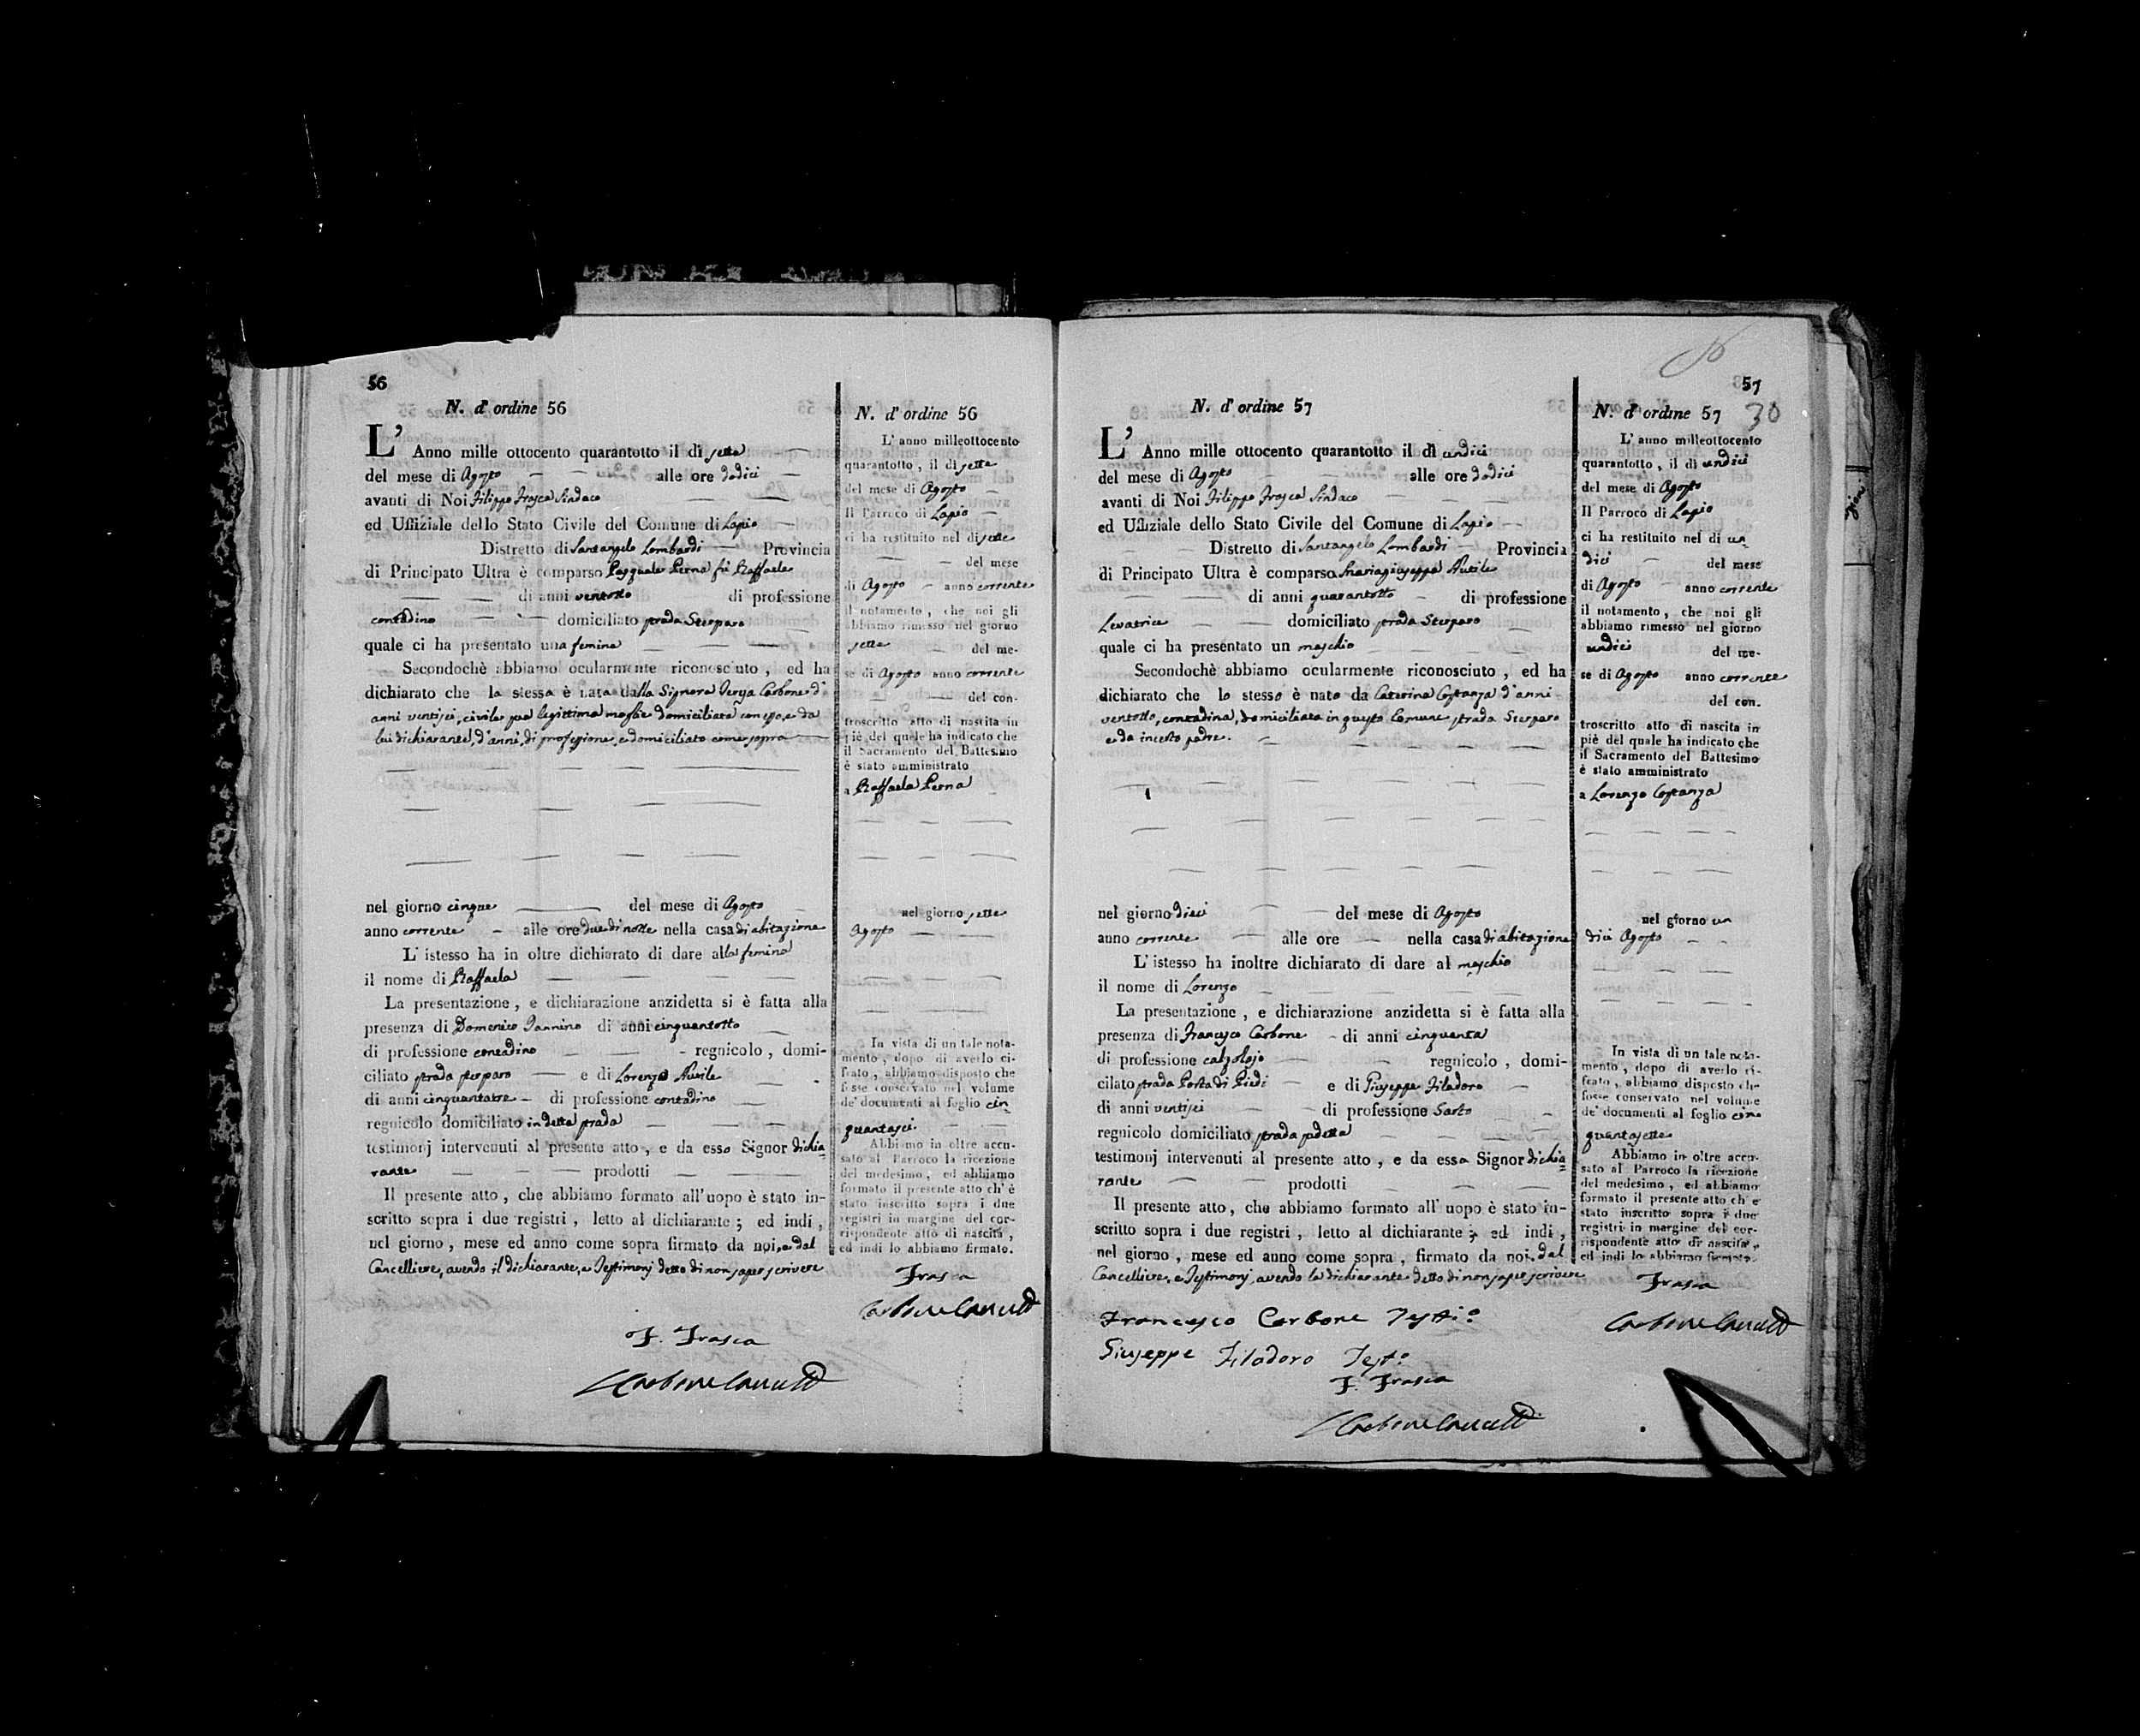 56
N. d'ordine 56
L'Anno mille ottocento quarantotto il dì sette
del mese di Agosto alle ore dodici
avanti di Noi Filippo Frasca Sindaco
ed Uffiziale dello Stato Civile del Comune di Lapio
Distretto di Santangelo Lombardi Provincia
di Principato Ultra è comparso Pasquale Perna fu Raffaele
di anni ventotto di professione
contadino domiciliato strada Sterparo
quale ci ha presentato una femina
Secondochè abbiamo ocularmente riconosciuto, ed ha
dichiarato che la stessa è nata dalla Signora Carbone d'
anni ventisei, civile sua legittima moglie domiciliata con esso, e da
lui dichiarante, d'anni, di professione, e domiciliato come sopra
nel giorno cinque del mese di Agosto
anno corrente alle ore due di notte nella casa di abitazione
L'istesso ha in oltre dichiarato di dare alla femina
il nome di Raffaela
La presentazione, e dichiarazione anzidetta si è fatta alla
presenza di Domenico Iannino di anni cinquantotto
di professione contadino regnicolo, domi-
ciliato strada sterparo e di Lorenzo Autile
di anni cinquantatre di professione contadino
regnicolo domiciliato in detta strada
testimonj intervenuti al presente atto, e da esso Signor dichia
rante prodotti
Il presente atto, che abbiamo formato all'uopo è stato in-
scritto sopra i due registri, letto al dichiarante; ed indi,
nel giorno, mese ed anno come sopra firmato da noi, e dal
Cancelliere, avendo il dichiarante, e Testimonj detto di non saper scrivere
F. Frasca
Carbone
N. d'ordine 56
L'anno milleottocento
quarantotto, il dì sette
del mese di Agosto
Il Parroco di Lapio
ci ha restituito nel dì sette
del mese
di Agosto anno corrente
il notamento, che noi gli
abbiamo rimesso nel giorno
sette del me-
se di Agosto anno corrente
del con-
troscritto atto di nascita in
piè del quale ha indicato che
il Sacramento del Battesimo
è stato amministrato
a Raffaela Perna
nel giorno sette
Agosto
In vista di un tale nota-
mento, dopo di averlo ci-
frato, abbiamo disposto che
fosse conservato nel volume
de' documenti al foglio cin
quantasei
Abbiamo in oltre accu-
sato al Parroco la ricezione
del medesimo, ed abbiamo
formato il presente atto ch'è
stato inscritto sopra i due
registri in margine del cor-
rispondente atto di nascita,
ed indi lo abbiamo firmato.
Frasca
Carbone
57
30
N. d'ordine 57
L'Anno mille ottocento quarantotto il dì undici
del mese di Agosto alle ore dodici
avanti di Noi Filippo Frasca Sindaco
ed Uffiziale dello Stato Civile del Comune di Lapio
Distretto di Santangelo Lombardi Provincia
di Principato Ultra è comparsa Mariagiuseppa Autile
di anni quarantotto di professione
Levatrice domiciliato strada Sterparo
quale ci ha presentato un maschio
Secondochè abbiamo ocularmente riconosciuto, ed ha
dichiarato che lo stesso è nato da Caterina Costanza d'anni
ventotto, contadina, domiciliata in questo Comune strada Sterparo
e da incerto padre.
nel giorno dieci del mese di Agosto
anno corrente alle ore nella casa di abitazione
L'istesso ha inoltre dichiarato di dare al maschio
il nome di Lorenzo
La presentazione, e dichiarazione anzidetta si è fatta alla
presenza di Francesco Carbone di anni cinquanta
di professione calzolajo regnicolo, domi-
cilato strada Porta di Piedi e di Giuseppe Filadoro
di anni ventisei di professione Sarto
regnicolo domiciliato strada sudetta
testimonj intervenuti al presente atto, e da essa Signor dichia
rante prodotti
Il presente atto, che abbiamo formato all'uopo è stato in-
scritto sopra i due registri, letto al dichiarante; ed indi,
nel giorno, mese ed anno come sopra, firmato da noi, dal
Cancelliere, e Testimonj, avendo la dichiarante detto di non saper scrivere
Francesco Carbone Testi:º
Giuseppe Filadoro Test:º
F. Frasca
Carbone
N. d'ordine 57
L'anno milleottocento
quarantotto, il dì undici
del mese di Agosto
Il Parroco di Lapio
ci ha restituito nel dì un
dici del mese
di Agosto anno corrente
il notamento, che noi gli
abbiamo rimesso nel giorno
undici del me-
se di Agosto anno corrente
del con-
troscritto atto di nascita in
piè del quale ha indicato che
il Sacramento del Battesimo
è stato amministrato
a Lorenzo Costanza
nel giorno un
dici Agosto
In vista di un tale nota-
mento, dopo di averlo ci-
frato, abbiamo disposto che
fosse conservato nel volume
de' documenti al foglio cin
quantasette
Abbiamo in oltre accu-
sato al Parroco la ricezione
del medesimo, ed abbiamo
formato il presente atto ch'è
stato inscritto sopra i due
registri in margine del cor-
rispondente atto di nascita,
ed indi lo abbiamo firmato.
Frasca
Carbone